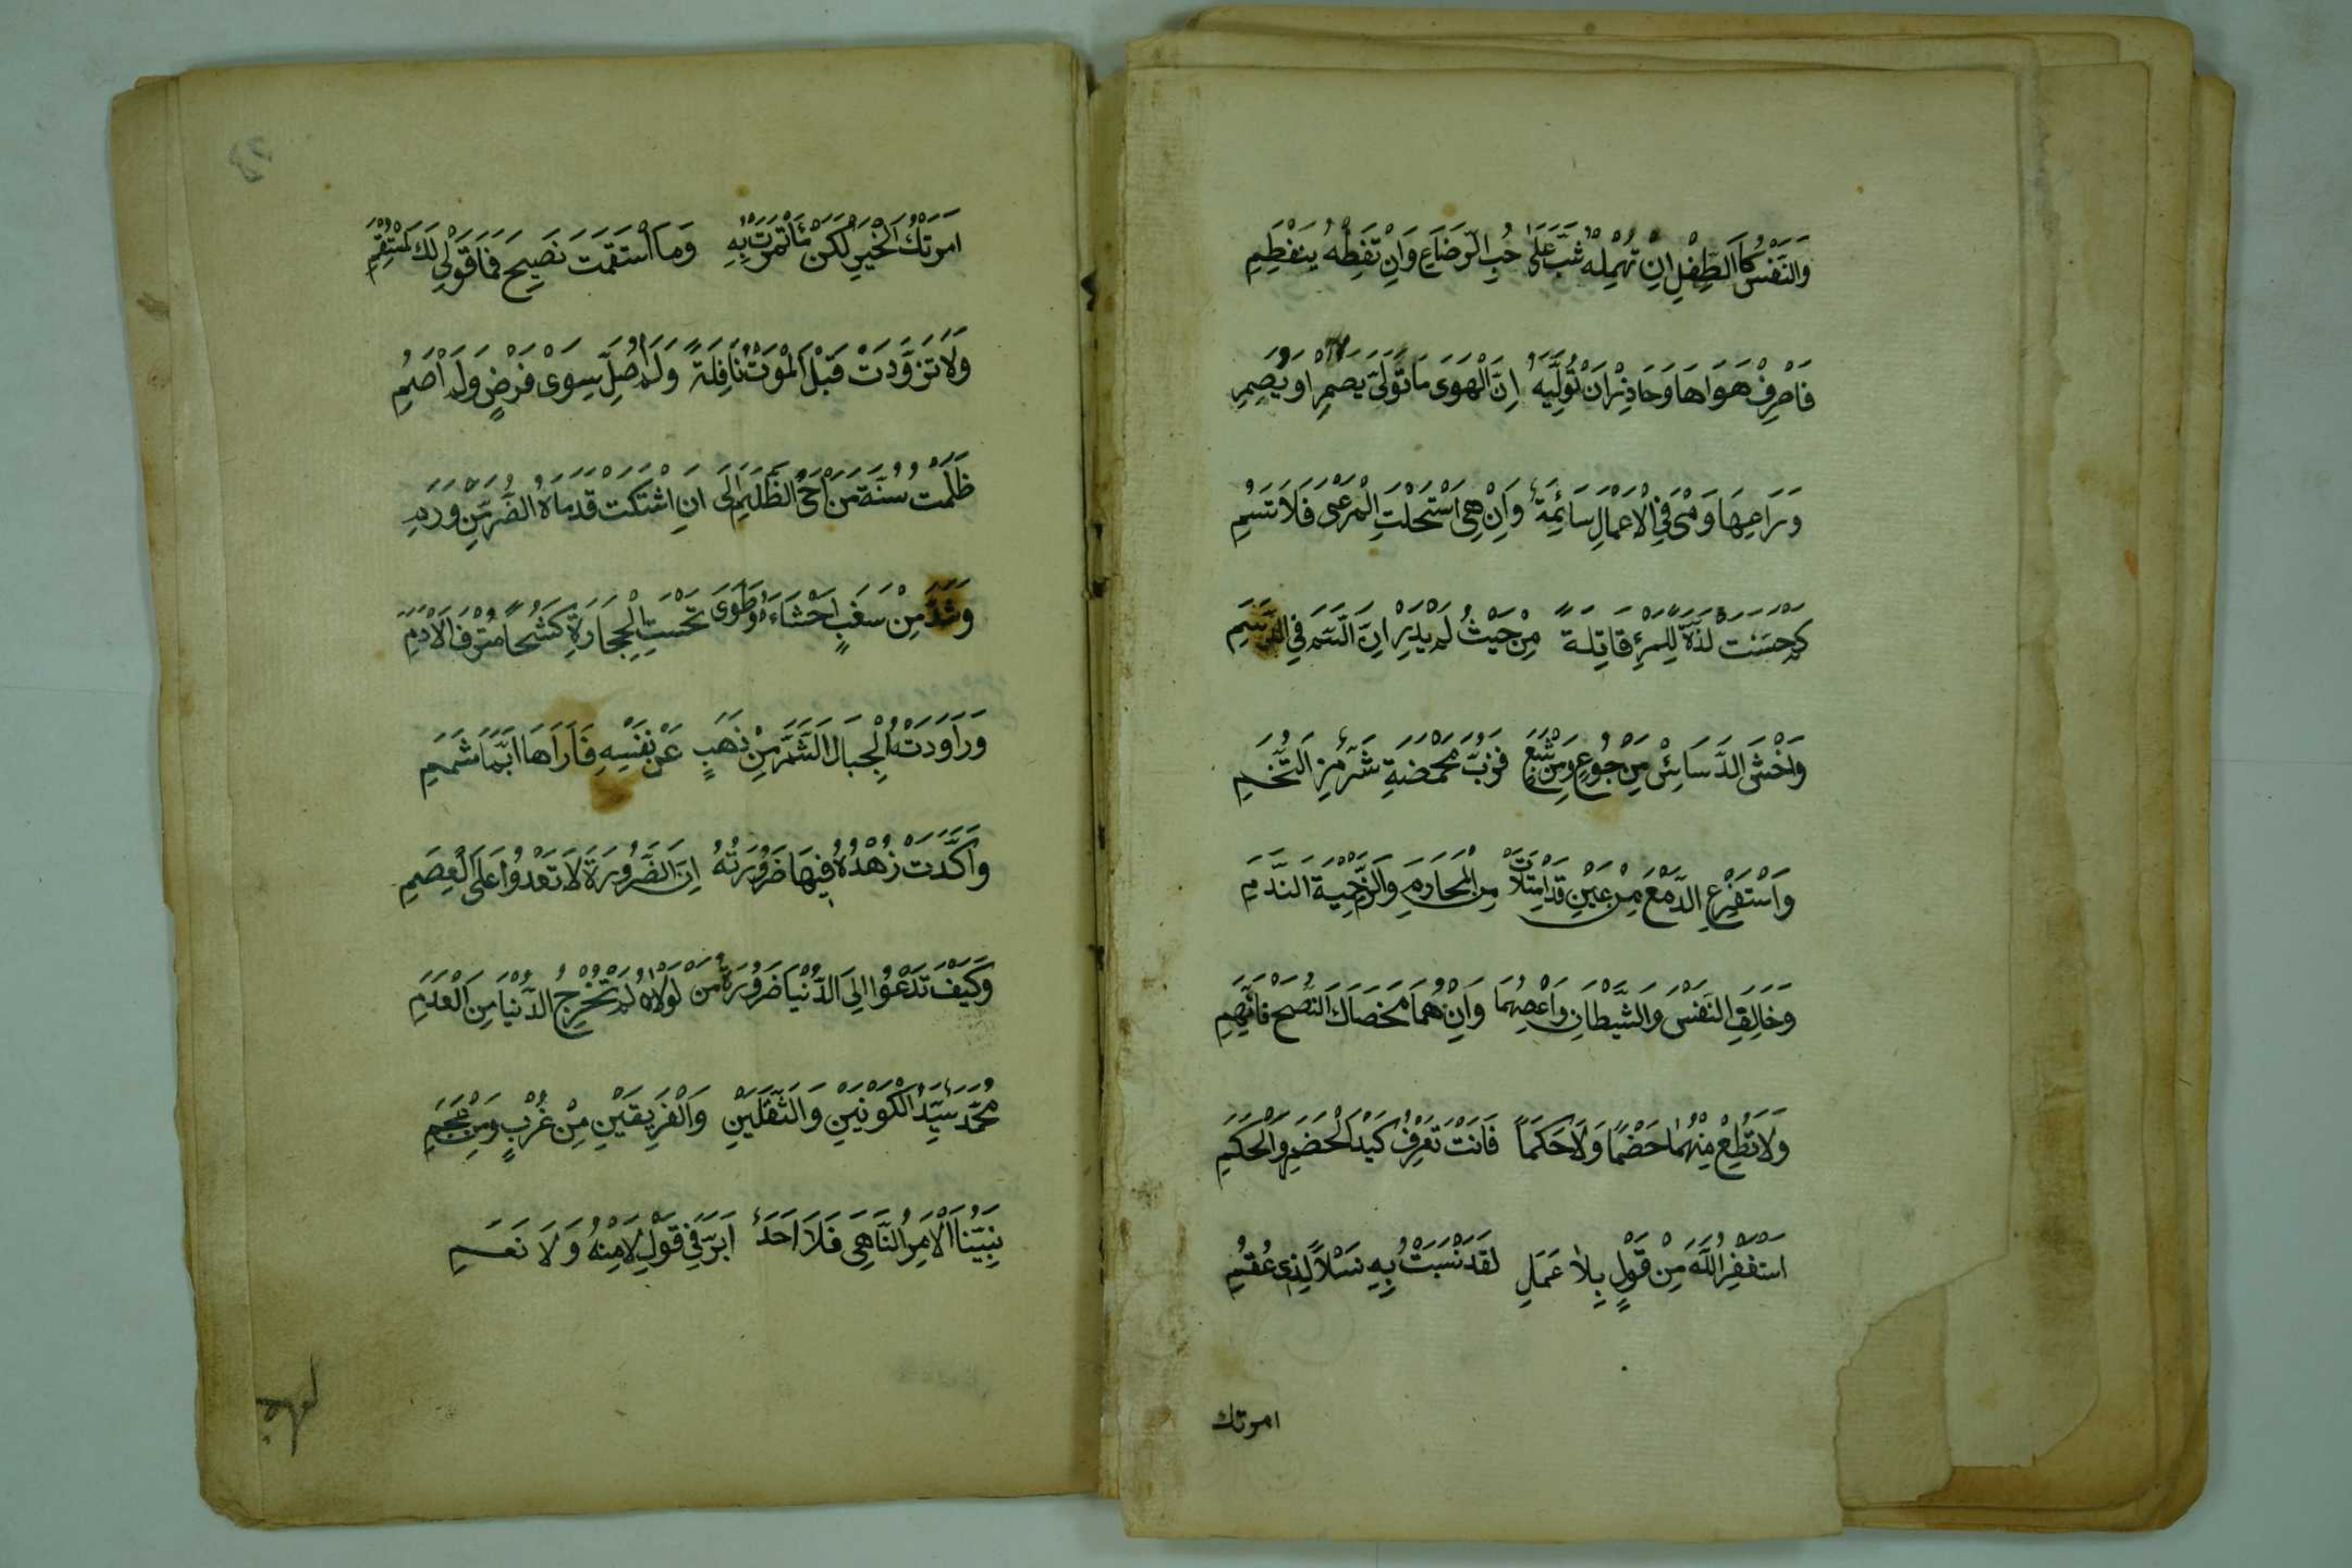 وَالنَّفْسُ كَالطِّفْلِ اِنْ تُهْمِلْهُ شَبَّ عَلٰى حُبِ الرَّضَاعِ وَاِنْ تَفْطِمْهُ يَنْفَطِمِ
فَاصْرِفْ هَوَاهَا وَحَاذِرْ اَنْ تُوَلِّيَهُ اِنَّ الْهَوَى مَا تَوَلَّى يُصْمِ اَوْ يَصِمِ
وَرَاعِهَا وَهْىَ فِي الْاَعْمَالِ سَائِمَةٌ وَاِنْ هِىَ اسْتَحْلَتِ الْمَرْعَى فَلَا تَسُمِ
كَمْ حَسَّنَتْ لَذَّةً لِلْمَرْءِ قَاتِلَةً مِنْ حَيْثُ لَمْ يَدْرِ اِنَّ السَّمَّ فِي الدَّسَمِ
وَاخْشَ الدَّسَائِسَ مِنْ جُوعٍ وَمِنْ شَبَعٍ فَرُبَّ مَخْمَصَةٍ شَرٌّ مِنَ التُّخَمِ
وَاسْتَفْرِغِ الدَّمْعَ مِنْ عَيْنٍ قَدِ امْتَلَأَتْ مِنَ الْمَحَارِمِ وَالْزَمْ حِمْيَةَ النَّدَمِ
وَخَالِفِ النَّفْسَ وَالشَّيْطَانَ وَاعْصِهِمَا وَاِنْ هُمَا مَحَضَاكَ النُّصْحَ فَاتَّهِمِ
وَلَا تُطِعْ مِنْهُمَا خَصْمًا وَلَا حَكَمًا فَاَنْتَ تَعْرِفُ كَيْدَ الْخَصْمِ وَالْحَكَمِ
اَسْتَغْفِرُ اللّٰهَ مِنْ قَوْلٍ بِلَا عَمَلٍ لَقَدْ نَسَبْتُ بِهِ نَسْلًا لِذِى عُقُمِ
امرتك
اَمَرْتُكَ الْخَيْرَ لٰكِنْ مَا ئْتَمَرْتُ بِهِ وَمَا اسْتَقَمْتُ فَمَا قَوْلِى لَكَ اسْتَقِمِ
وَلَا تَزَوَّدْتُ قَبْلَ الْمَوْتِ نَافِلَةً وَلَمْ اُصَلِّ سِوَى فَرْضٍ وَلَمْ اَصُمِ
ظَلَمْتُ سُنَّةَ مَنْ اَحْىَ الظَّلَامَ اِلَى اَنِ اشْتَكَتْ قَدَمَاهُ الضُّرَّ مِنْ وَرَمِ
وَشَدَّ مِنْ سَغَبٍ اَحْشَاءَهُ وَطَوَى تَحْتَ الْحِجَارَةِ كَشْحًا مُتْرَفَ الْاَدَمِ
وَرَاوَدَتْهُ الْجِبَالُ الشُّمُّ مِنْ ذَهَبٍ عَنْ نَفْسِهِ فَاَرَاهَا اَيَّمَا شَمَمِ
وَاَكَّدَتْ زُهْدَهُ فِيهَا ضَرُورَتُهُ اِنَّ الضَّرُورَةَ لَا تَعْدُوا عَلَى الْعِصَمِ
وَكَيْفَ تَدْعُوا اِلَى الدُّنْيَا ضَرُورَةُ مَنْ لَوْلَاهُ لَمْ تُخْرَجِ الدُّنْيَا مِنَ الْعَدَمِ
مُحَمَّدٌ سَيِّدُ الْكَوْنَيْنِ وَالثَّقَلَيْنِ وَالْفَرِيقَيْنِ مِنْ عُرْبٍ وَمِنْ عَجَمِ
نَبِيُّنَا الْاٰمِرُ النَّاهِى فَلَا اَحَدٌ اَبَرَّ فِي قَوْلِ لَا مِنْهُ وَلَا نَعَمِ